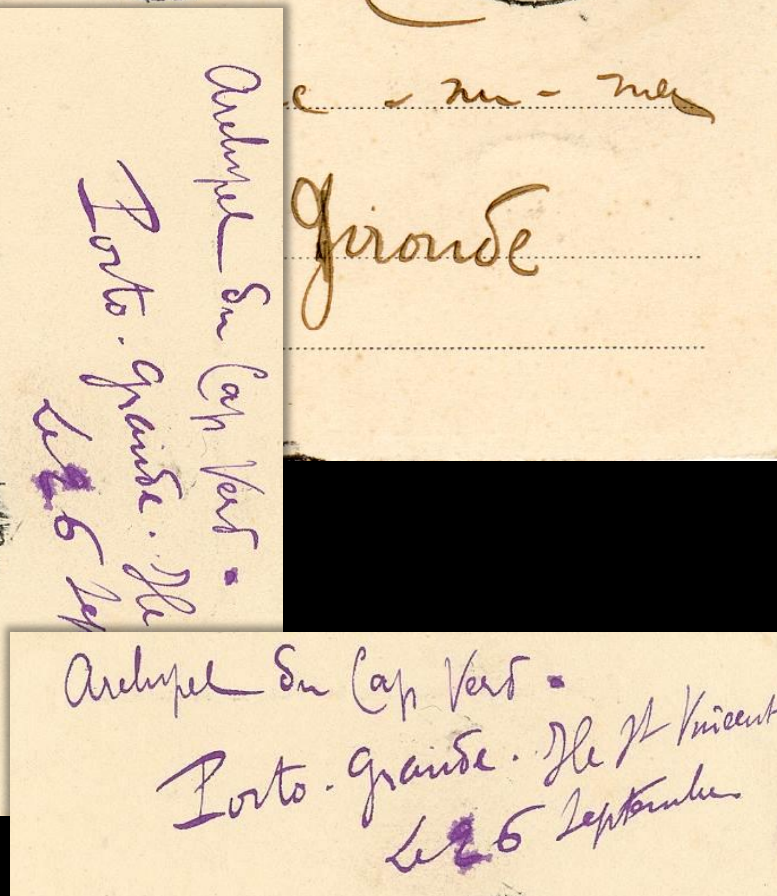 Archipel du Cap Vert.
Porto-Grande. Ile
Le 26 Sep
Gironde
Archipel du Cap Vert.
Porto-Grande. Ile St Vincent
Le 26 Septembre